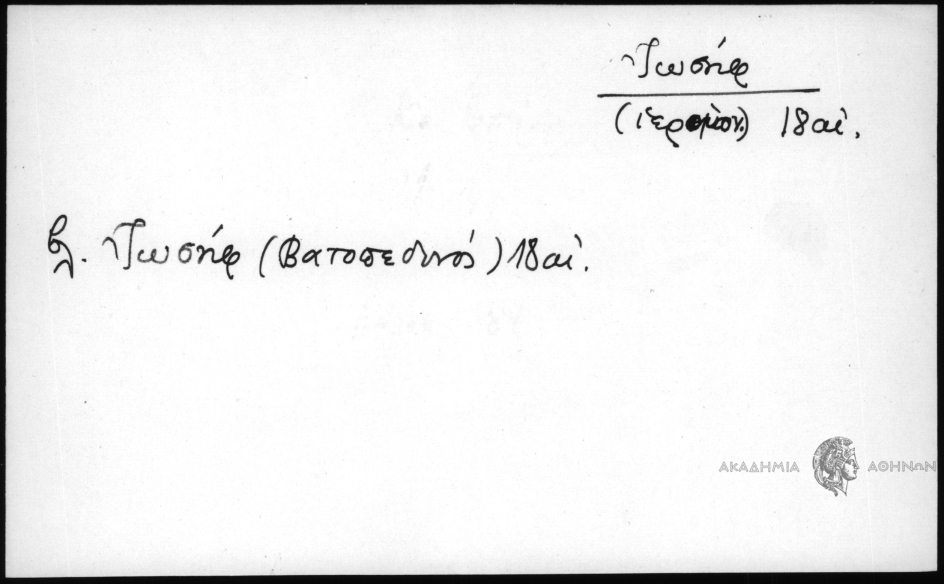 Ἰωσήφ
(ἱερομόν.) 18 αἰ.
βλ. Ἰωσήφ (Βατοπεδινός) 18 αἰ.
ΑΚΑΔΗΜΙΑ ΑΘΗΝΩΝ